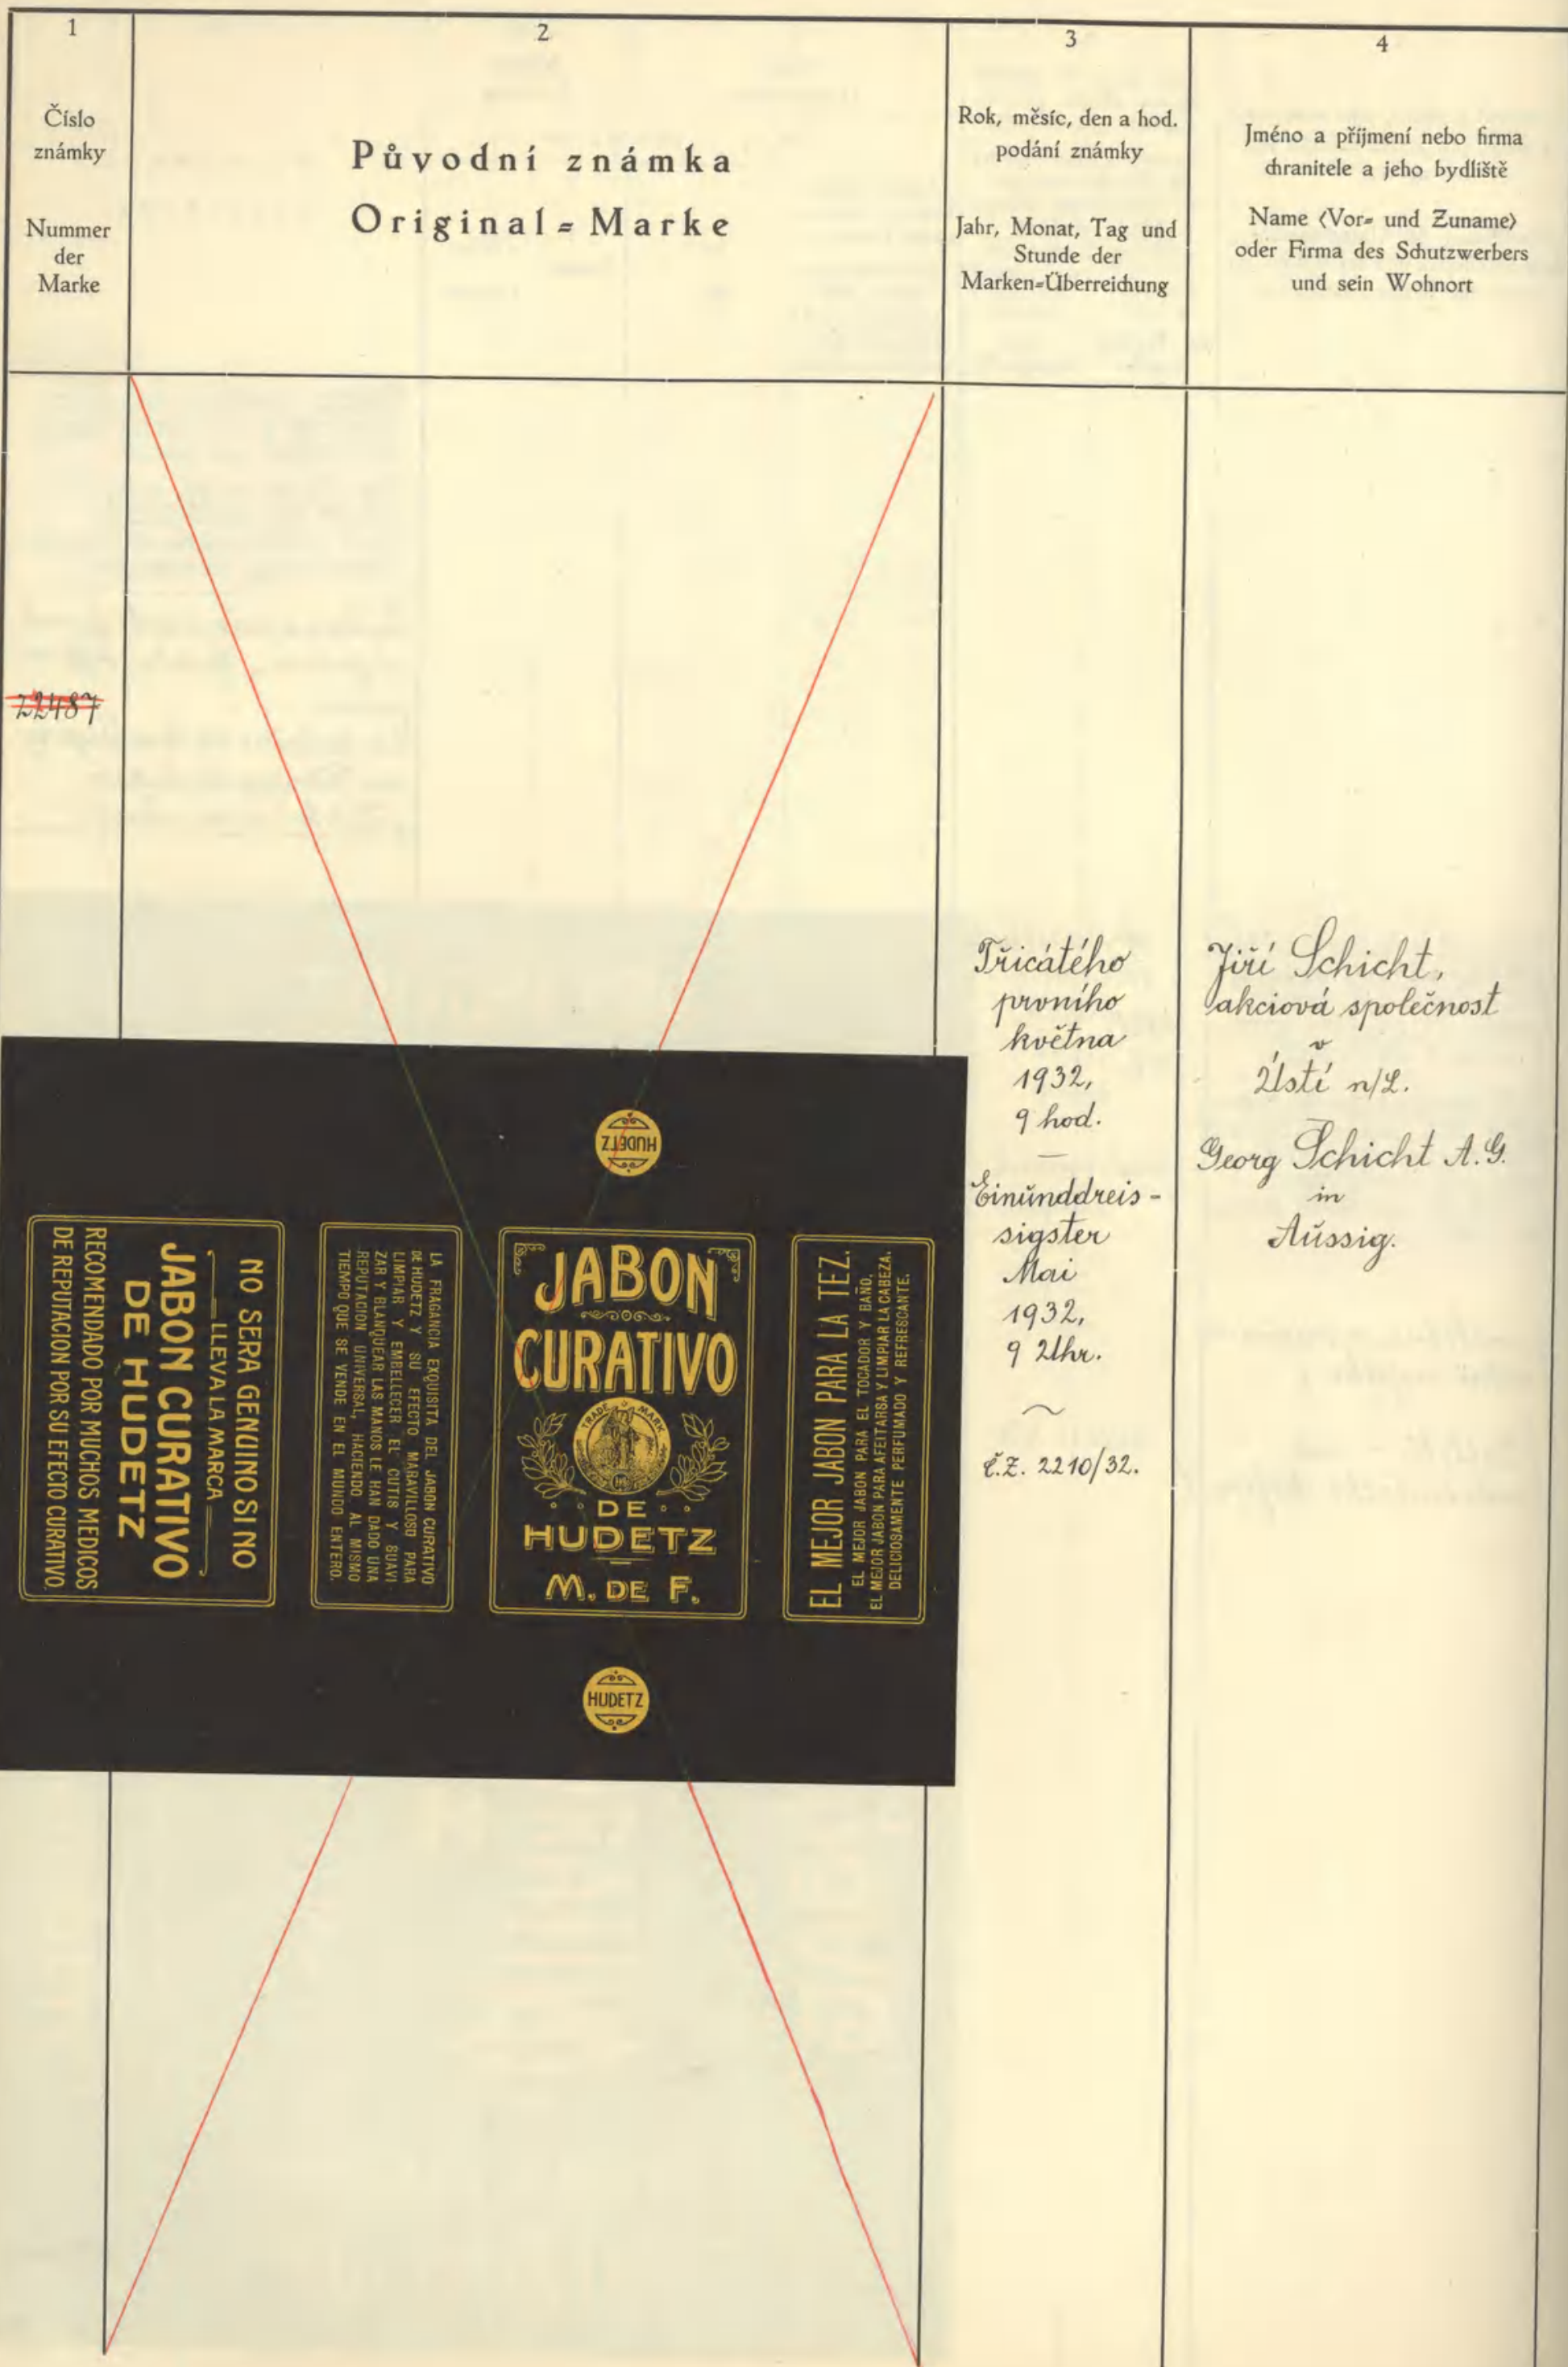 1
Číslo
známky
Nummer
der
Marke
2
Původní známka
Original=Marke
3
Rok, měsíc, den a hod.
podání známky
Jahr, Monat, Tag und
Stunde der
Marken=Überreichung
4
Jméno a příjmení nebo firma
chranitele a jeho bydliště
Name (Vor= und Zuname)
oder Firma des Schutzwerbers
und sein Wohnort
22487
HUDETZ
NO SERA GENUINO SI NO
LLEVA LA MARCA
JABON CURATIVO
DE HUDETZ
RECOMENDADO POR MUCHOS MEDICOS
DE REPUTACION POR SU EFECTO CURATIVO.
LA FRAGANCIA EXQUISITA DEL JABON CURATIVO
DE HUDETZ Y SU EFECTO MARAVILLOSO PARA
LIMPIAR Y EMBELLECER EL CUTIS Y SUAVI-
ZAR Y BLANQUEAR LAS MANOS LE HAN DADO UNA
REPUTACION UNIVERSAL, HACIENDO AL MISMO
TIEMPO QUE SE VENDE EN EL MUNDO ENTERO.
JABON
CURATIVO
TRADE MARK
DE
HUDETZ
M. DE F.
EL MEJOR JABON PARA LA TEZ.
EL MEJOR JABON PARA EL TOCADOR Y BAÑO.
EL MEJOR JABON PARA AFEITARSA Y LIMPIAR LA CABEZA.
DELICIOSAMENTE PERFUMADO Y REFRESCANTE.
HUDETZ
Třicátého
prvního
května
1932,
9 hod.
—
Einunddreis-
sigster
Mai
1932,
9 Uhr.
~
č.z. 2210/32.
Jiří Schicht,
akciová společnost
v
Ústí n/L.
Georg Schicht A.G.
in
Aussig.